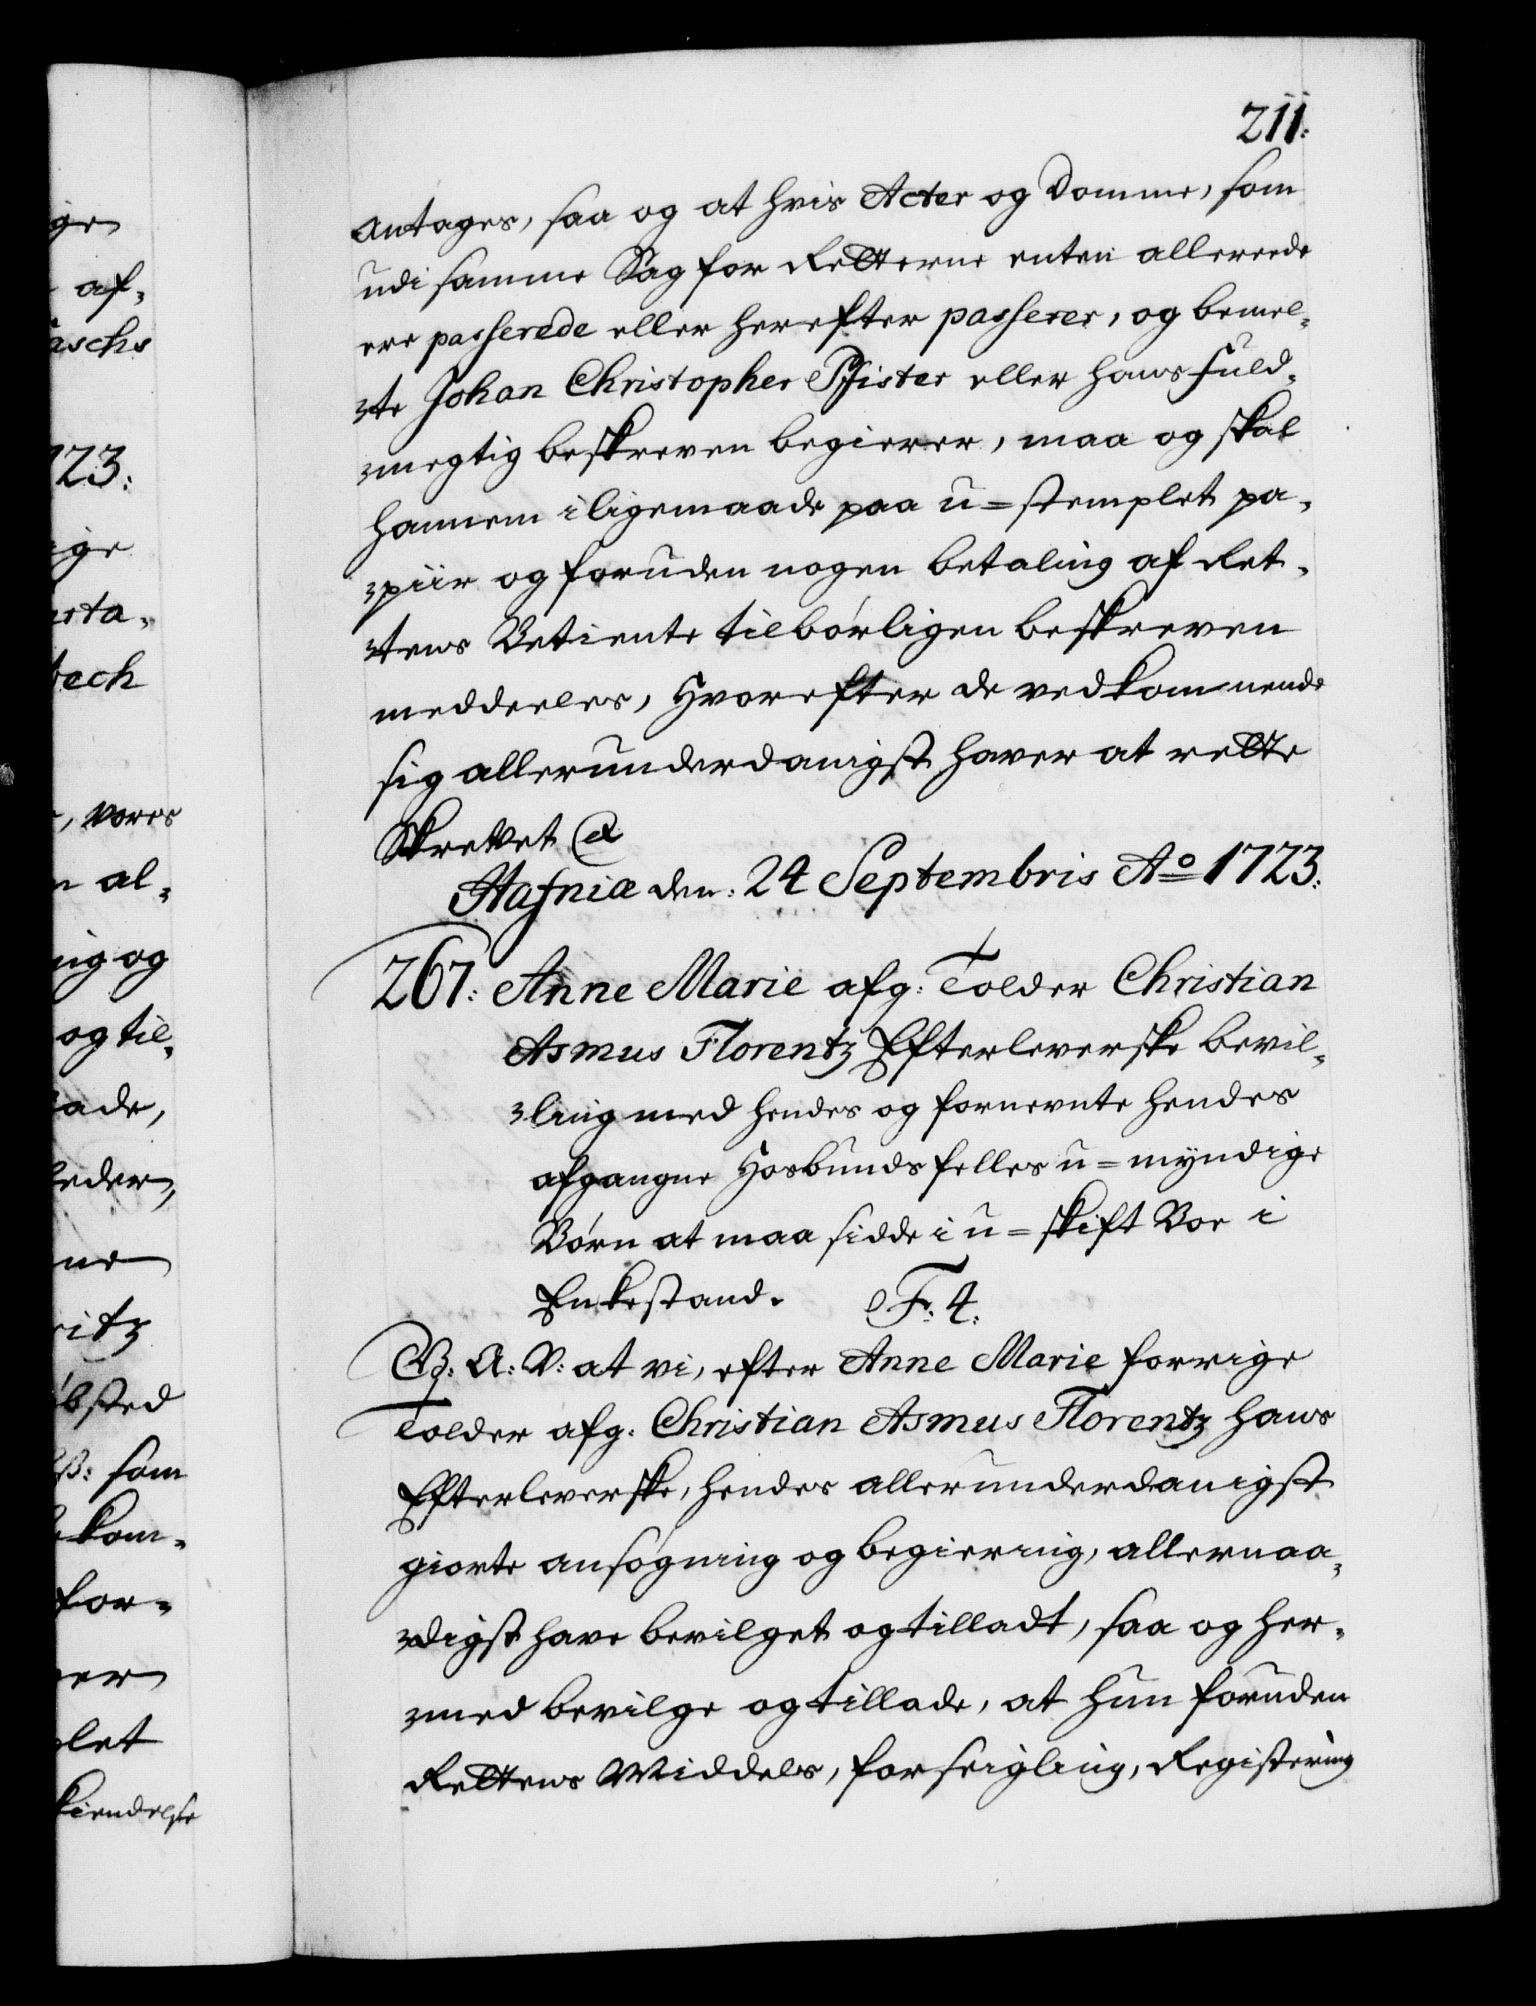 211.
antages, saa og at hvis Acter og Domme, som
udi samme Sag for Retterne enten allereede
ere passerede eller herefter passerer, og bemel-
te Johan Christopher Pfister eller hans Fuld-
megtig beskreven begierer, maa og skal
hannem iligemaade paa u=stemplet pa-
piir og foruden nogen betaling af Ret-
tens Betiente tilbørligen beskreven
meddeeles, Hvorefter de vedkommende
sig allerunderdanigst haver at rette
Skrevet &
Hafniæ den: 24 Septembris Ao 1723.
267: Anne Marie afg: Tolder Christian
Asmus Florentz Efterleverske bevil-
ling med hendes og fornevnte hendes
afgangne Hosbunds felles u=myndige
Børn at maa sidde i u=skift Boe i
Enkestand. F: 4:
G: A: V: at vi, efter Anne Marie forrige
Tolder afg: Christian Asmus Florentz hans
Efterleverske, hendes allerunderdanigst
giorte ansøgning og begiering, allernaa-
digst have bevilget og tilladt, saa og her-
med bevilge og tillade, at hun foruden
Rettens Middels, forseigling, Registering
ge
af-
aschs
723:
ige
sta-
bech
, vores
al-
ng og
og til-
ade,
eder,
ne
ritz
bsted
ß: som
kom-
for-
er
let
kiendelse